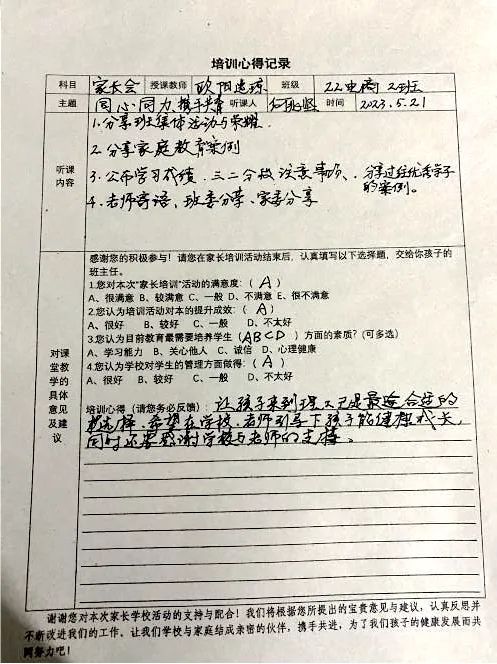 培训心得记录
科目 家长会 授课教师 欧阳连琼 班级 22电商2班
主题 同心同力、携手共育 听课人 时间 2023.5.21
1.分享班集体活动与荣耀.
2.分享家庭教育案例
听课
内容
3.公布学习成绩、三二分段注意事项、分享过往优秀学子
的案例。
4.老师寄语、班委分享、家委分享
感谢您的积极参与！请您在家长培训活动结束后，认真填写以下选择题，交给你孩子的
班主任。
1.您对本次"家长培训"活动的满意度：（ A ）
A、很满意 B、较满意 C、一般 D、不满意 E、很不满意
2.您认为培训活动对本的提升成效：（ A ）
A、很好 B、较好 C、一般 D、不太好
3.您认为目前教育最需要培养学生（ABCD）方面的素质？（可多选）
A、学习能力 B、关心他人 C、诚信 D、心理健康
4.您认为学校对学生的管理方面做得：（ A ）
A、很好 B、较好 C、一般 D、不太好
对课
堂教
学的
具体
意见
及建
议
培训心得（请您务必反馈）：让孩子来到理工已是最适合适的
选择，希望在学校、老师引导下孩子能健康成长，
同时还要感谢学校与老师的支持。
谢谢您对本次家长学校活动的支持与配合！我们将根据您所提出的宝贵意见与建议，认真反思并
不断改进我们的工作。让我们学校与家庭结成亲密的伙伴，携手共进，为了我们孩子的健康发展而共
同努力吧！